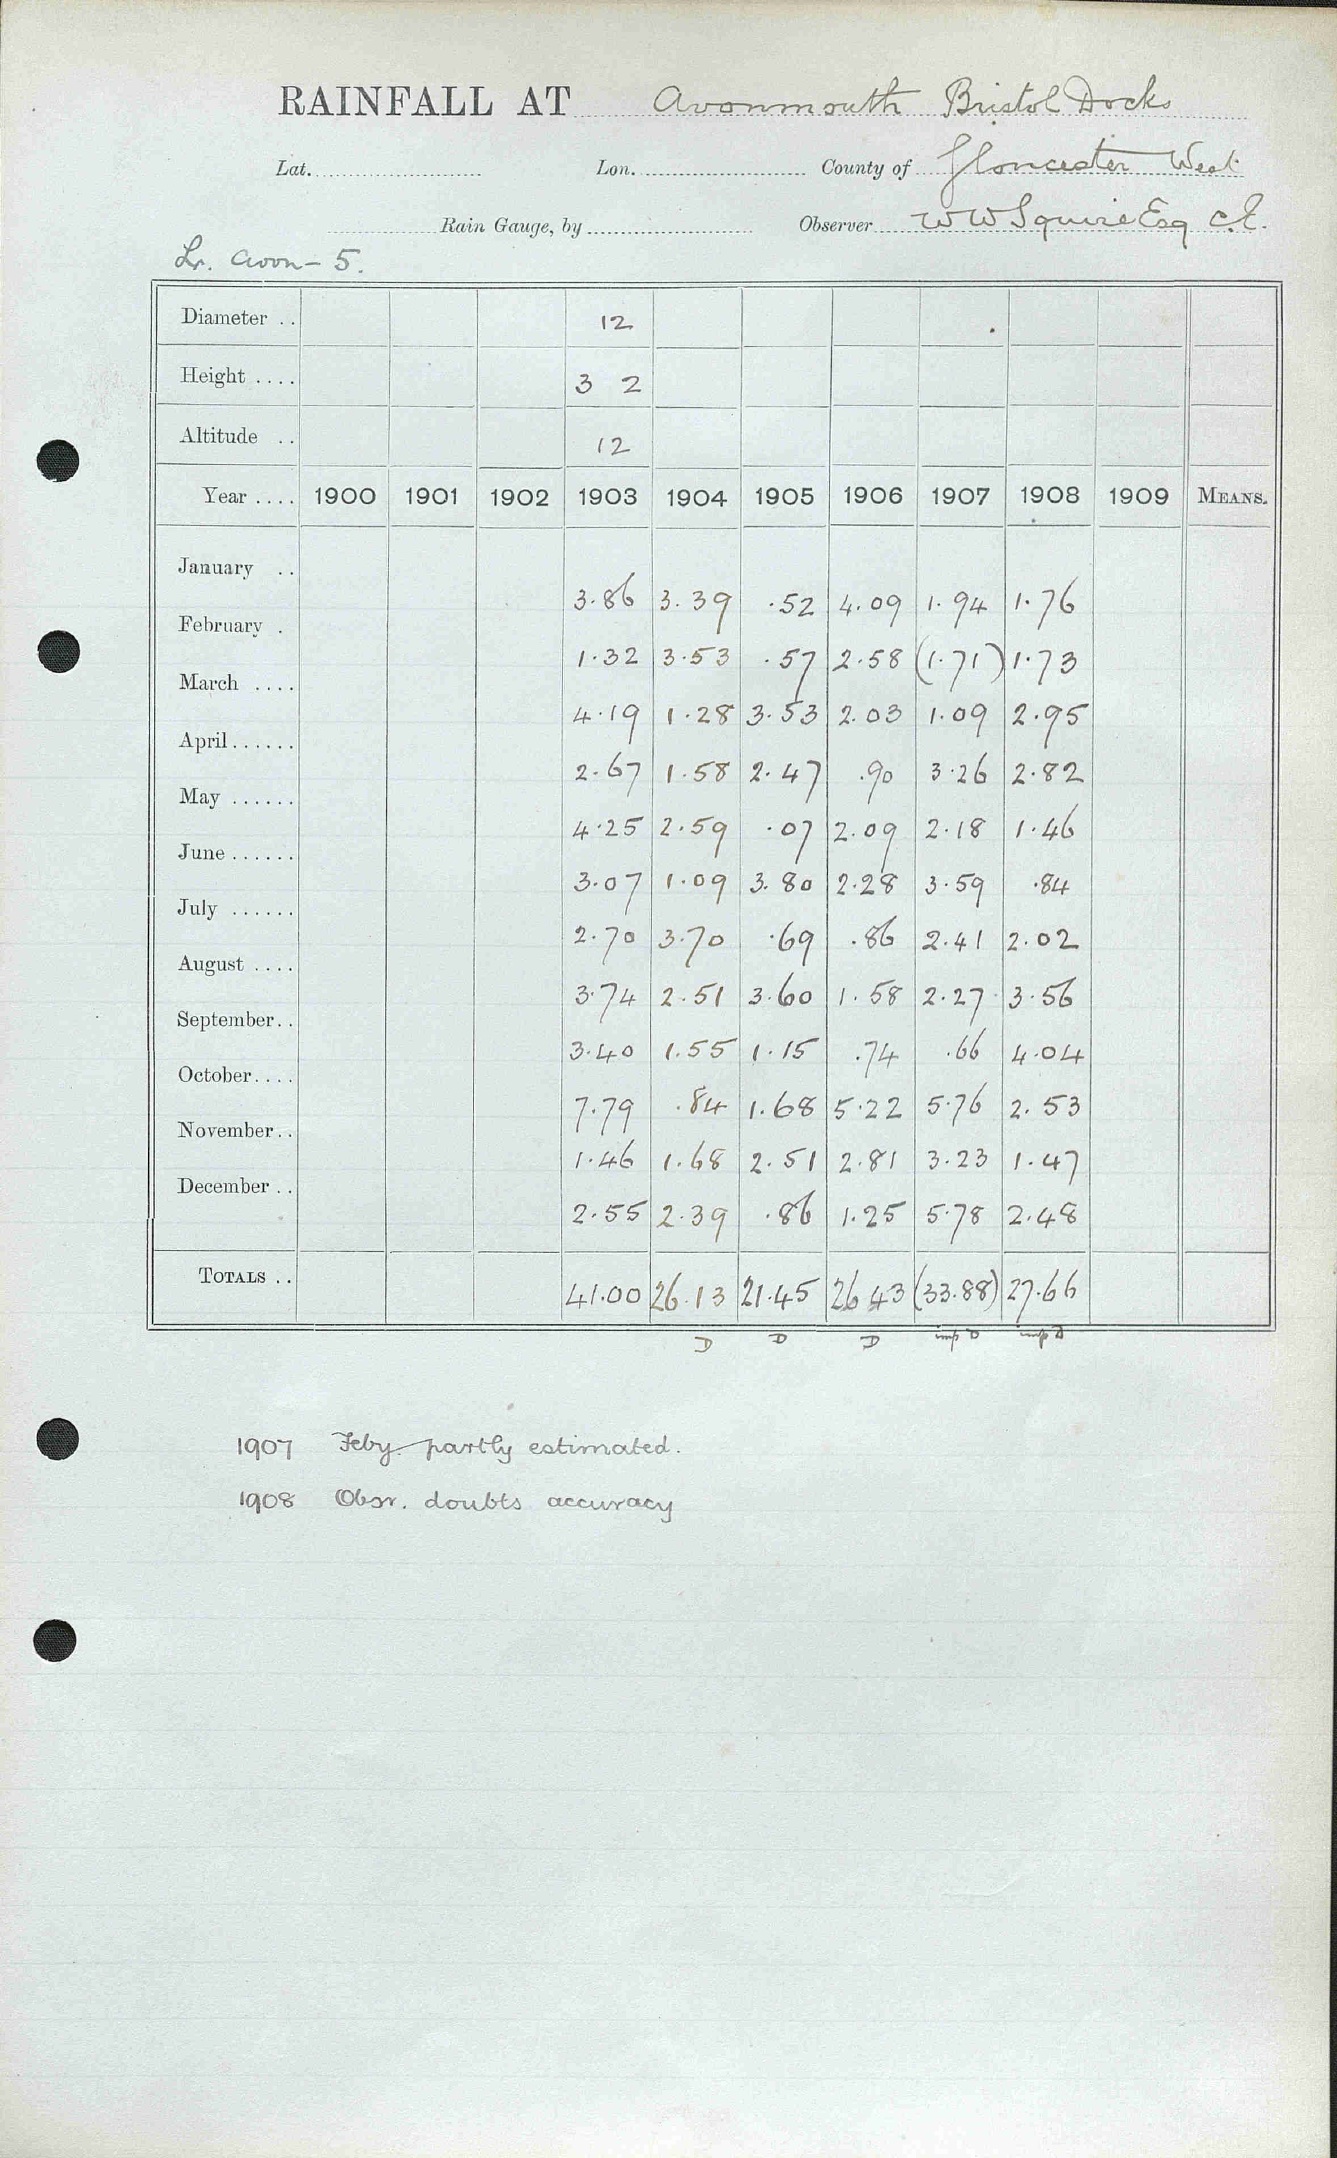 RAINFALL AT Avonmouth Bristol Docks
Lat. Lon. County of Gloucester West
Rain Gauge, by Observer W W Squire Esq C.E.
Lr. Avon - 5.
Diameter .. 12
Height .... 3 2
Altitude .. 12
Year .... 1900 1901 1902 1903 1904 1905 1906 1907 1908 1909 MEANS.
January .. 3.86 3.39 .52 4.09 1.94 1.76
February . 1.32 3.53 .57 2.58 (1.71) 1.73
March .... 4.19 1.28 3.53 2.03 1.09 2.95
April...... 2.67 1.58 2.47 .90 3.26 2.82
May ...... 4.25 2.59 .07 2.09 2.18 1.46
June...... 3.07 1.09 3.80 2.28 3.59 .84
July ...... 2.70 3.70 .69 .86 2.41 2.02
August .... 3.74 2.51 3.60 1.58 2.27 3.56
September.. 3.40 1.55 1.15 .74 .66 4.04
October.... 7.79 .84 1.68 5.22 5.76 2.53
November.. 1.46 1.68 2.51 2.81 3.23 1.47
December .. 2.55 2.39 .86 1.25 5.78 2.48
TOTALS .. 41.00 26.13 21.45 26 43 (33.88) 27.66
D D D imp D imp D
1907 Feby partly estimated.
1908 Obsr. doubts accuracy